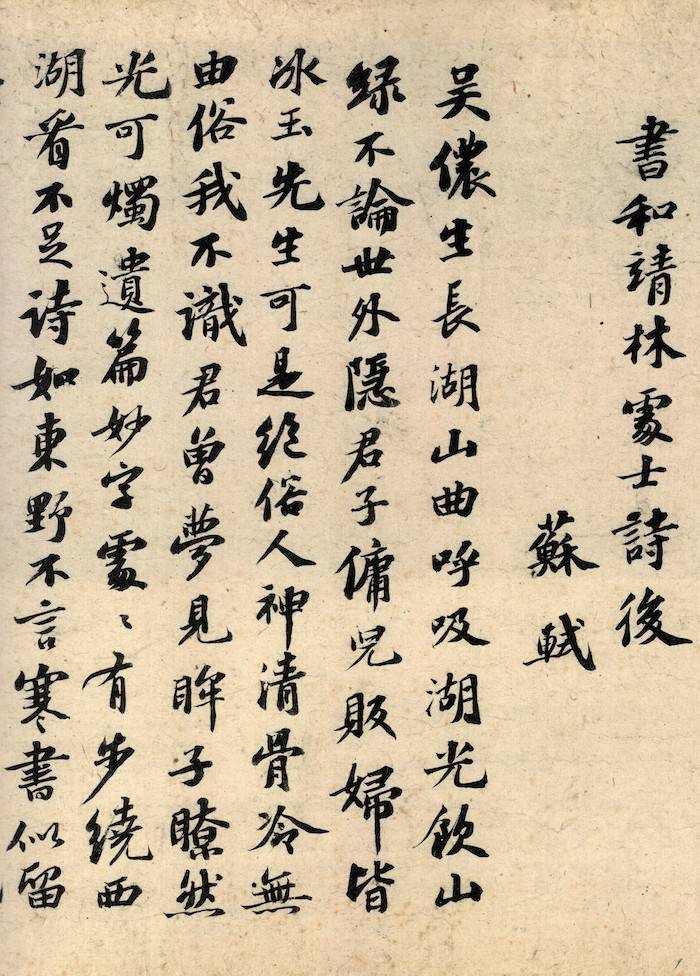 書和靖林處士詩後
蘇軾
吳儂生長湖山曲呼吸湖光飲山
緑不論世外隱君子傭兒販婦皆
冰玉先生可是絕俗人神清骨冷無
由俗我不識君曾夢見眸子瞭然
光可燭遺篇妙字處〻有步繞西
湖看不足詩如東野不言寒書似留